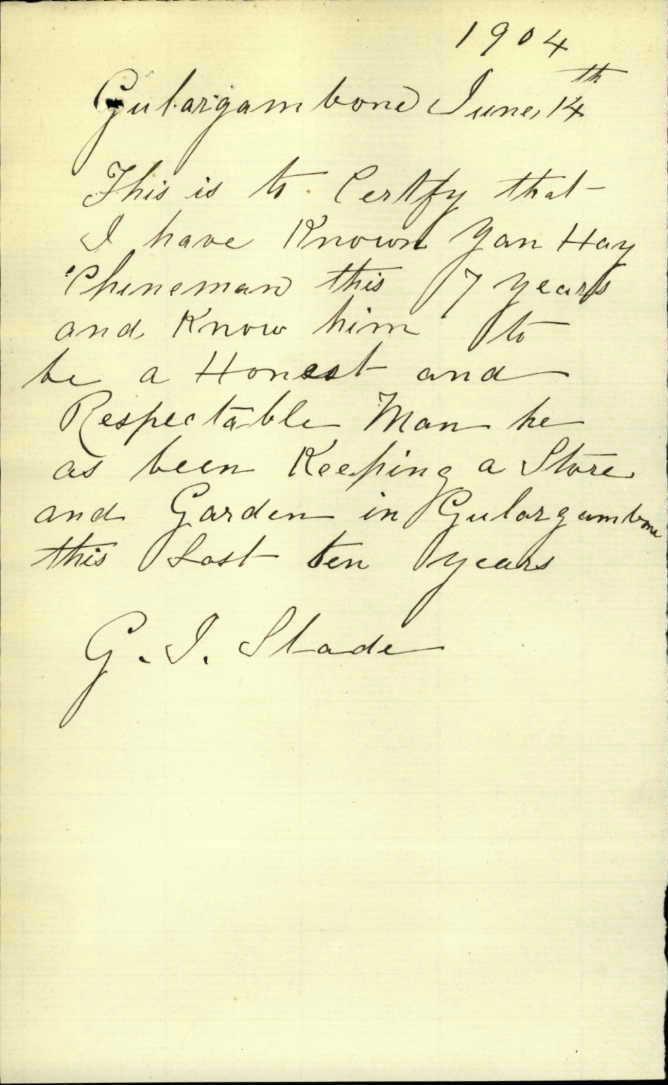 1904
Gulargambone June, 14th
This is to Certify that
I have Known Yan Hay
Chineman this 7 years
and Know him to
be a Honest and
Respectable Man he
as been Keeping a Store
and Garden in Gulargambone
this Last ten years
G. I. Slade